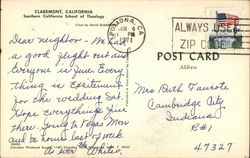 CLAREMONT, CALIFORNIA
Southern California School of Theology
POMONA, CA
JUN
1971
ALWAYS USE
ZIP CODE
POST CARD
Address
Dear neighbor - We had
a good flight out and
Everyone is fine. Every
Thing is Excitement
for the wedding Sat.
Hope everything fine
there. Going to Vegas Mon
and be home last of week.
as ever the Whites.
Mrs Beth
Cambridge City
Indiana
R#1
47327